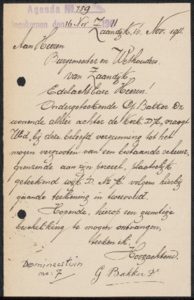 Agenda No. 789
16 Nov. 1911
Zaandijk, 16 Nov. 1911
Aan Heeren
Burgemeester en Wethouders
van Zaandijk
Edelachtbare Heeren!
Ondergeteekende Gj. Bakker Dz
wonende alhier achter de Kerk D. , vraagt
Ued. bij dez beleefd vergunning tot het
mogen vergrooten van een bestaande
grenzende aan zijn perceel, plaatselijk
gebrekend wijk D. No. , volgens hierbij
gaande teekening in tweevoud.
Hopende, hierop een gunstige
beschikking te mogen ontvangen,
teeken ik,
Hoogachtend
Dominestuin
no. 7
G Bakker Dz